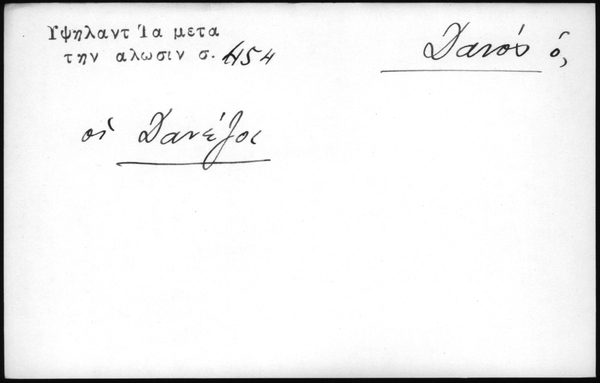 Ὑψηλαντ Ἱα μετα
την αλωσιν σ. 454
Δανός ὁ,
οἱ Δανέζοι